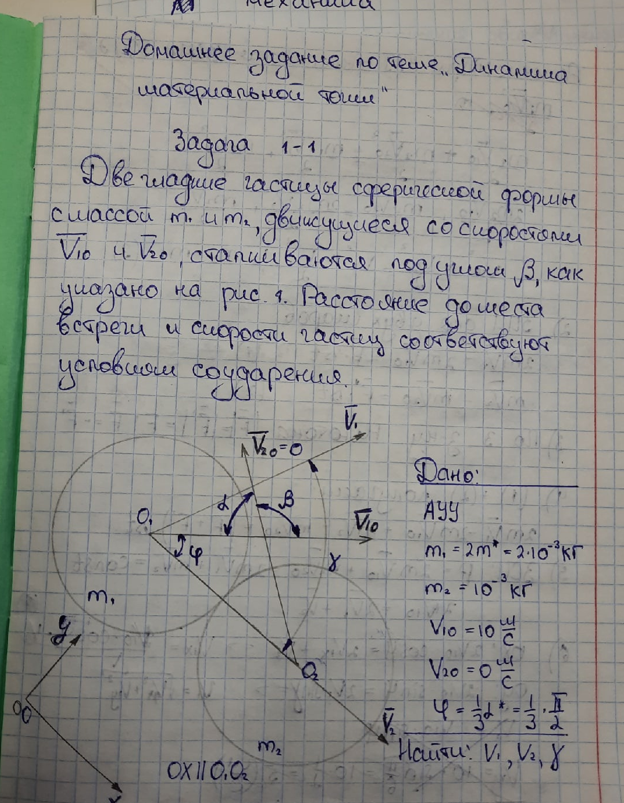 механика
Домашнее задание по теме „Динамика
материальной точки“
Задача 1-1
Две гладкие частицы сферической формы
с массой m₁ и m₂, движущиеся со скоростями
V̅₁₀ и V̅₂₀, сталкиваются под углом β, как
указано на рис. 1. Расстояние до места
встречи и скорости частиц соответствуют
условиям соударения.
V̅₂₀=0
V̅₁
α
β
O₁
V̅₁₀
φ
γ
m₁
y
O₂
V̅₂
m₂
O
x
OX||O₁O₂
Дано:
АУУ
m₁ = 2m* = 2·10⁻³ кг
m₂ = 10⁻³ кг
V₁₀ = 10 м/с
V₂₀ = 0 м/с
φ = 1/3 α* = 1/3 · π/2
Найти: V₁, V₂, γ